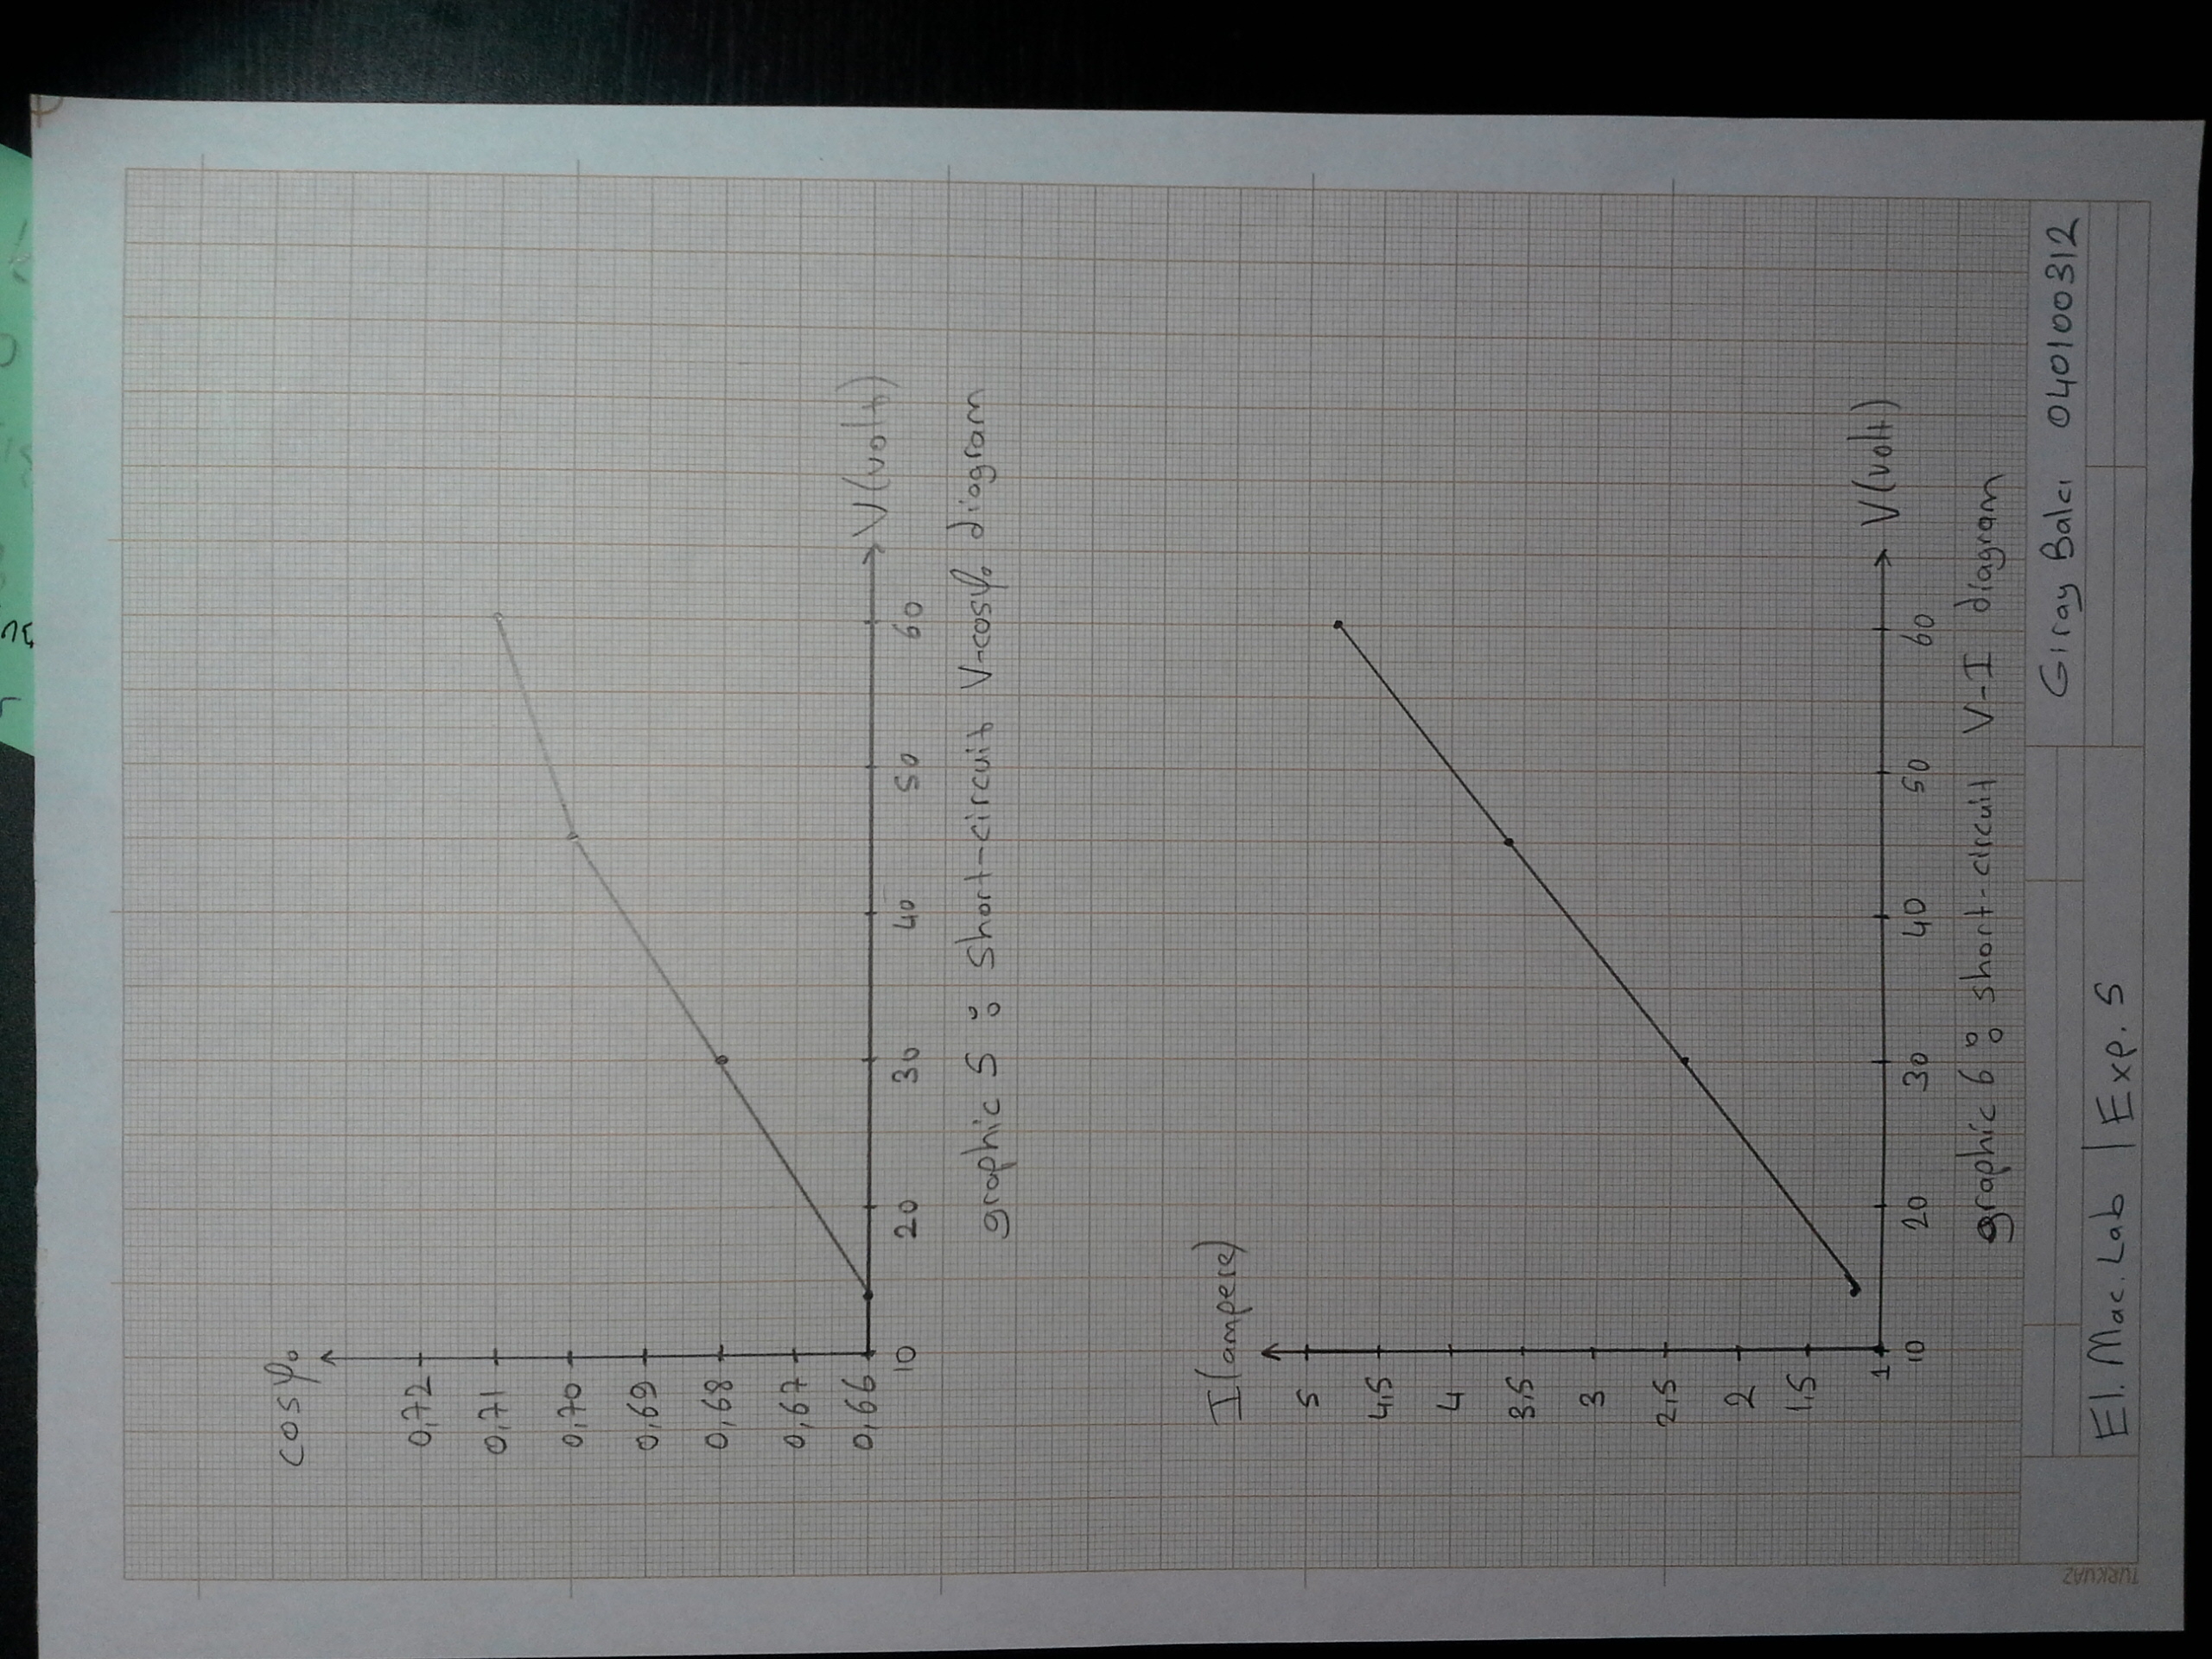 cosφ₀
0,72
0,71
0,70
0,69
0,68
0,67
0,66
10 20 30 40 50 60
V(volt)
graphic 5 : Short-circuit V-cosφ₀ diagram
I(ampere)
5
4,5
4
3,5
3
2,5
2
1,5
1
10 20 30 40 50 60
V(volt)
graphic 6 : short-circuit V-I diagram
Giray Balcı 040100312
El. Mac. Lab | Exp. 5
TURKUAZ